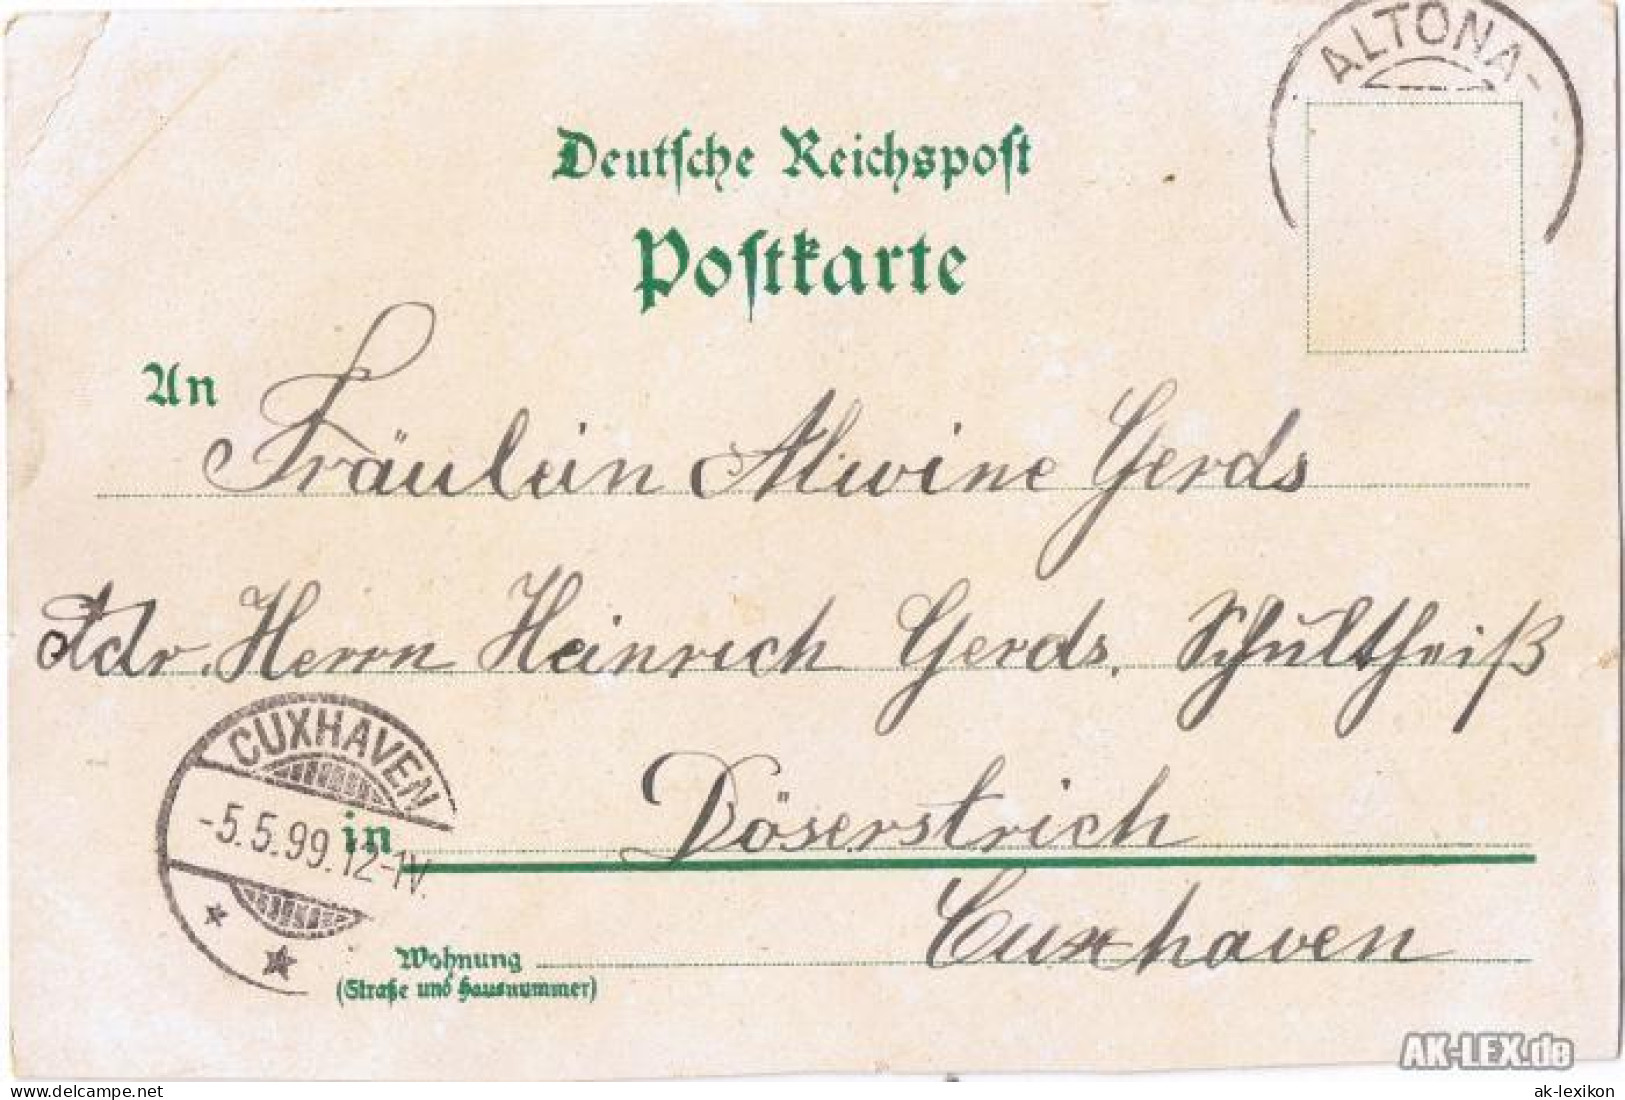 ALTONA-
Deutsche Reichspost
Postkarte
An
Fräulein Alwine Gerds
Adr. Herrn Heinrich Gerds, Schultheiß
CUXHAVEN
-5.5.99.12-1N.
in Döserstrich
Cuxhaven
Wohnung
(Straße und Hausnummer)
AK-LEX.de
ak-lexikon